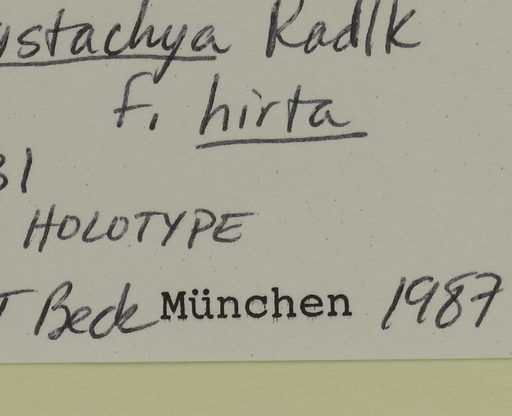 ystachya Radlk
f. hirta
31
HOLOTYPE
T Beck München 1987